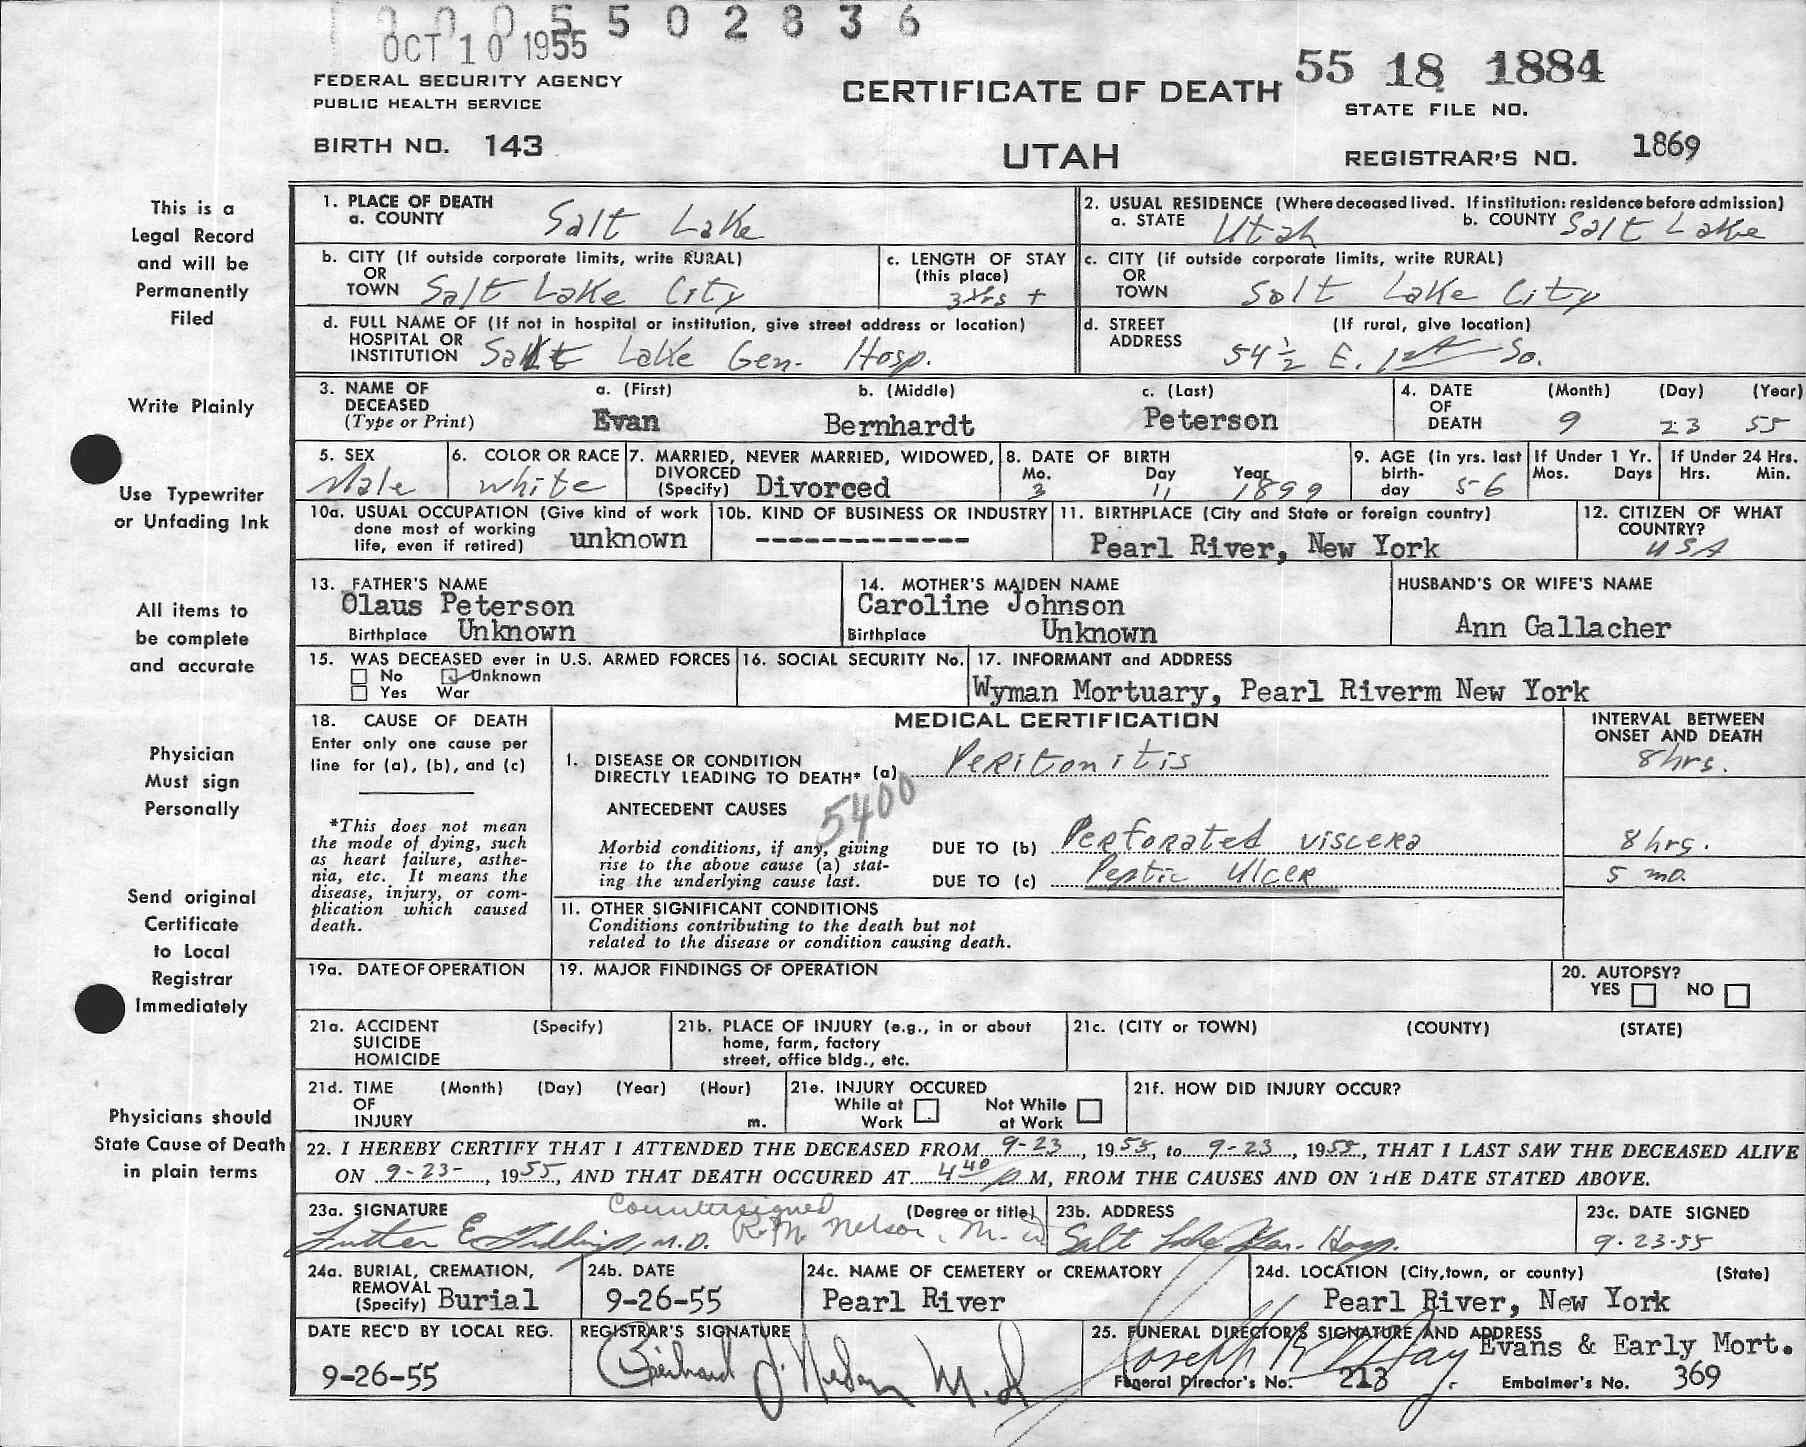 000550 2836
OCT 10 1955
55 18 1884
FEDERAL SECURITY AGENCY
PUBLIC HEALTH SERVICE
CERTIFICATE OF DEATH
STATE FILE NO.
BIRTH NO. 143
UTAH
REGISTRAR'S NO. 1869
This is a
Legal Record
and will be
Permanently
Filed
Write Plainly
Use Typewriter
or Unfading Ink
All items to
be complete
and accurate
Physician
Must sign
Personally
Send original
Certificate
to Local
Registrar
Immediately
Physicians should
State Cause of Death
in plain terms
1. PLACE OF DEATH
a. COUNTY Salt Lake
2. USUAL RESIDENCE (Where deceased lived. If institution: residence before admission)
a. STATE Utah b. COUNTY Salt Lake
b. CITY (If outside corporate limits, write RURAL)
OR
TOWN Salt Lake City
c. LENGTH OF STAY
(this place)
3 Yrs +
c. CITY (if outside corporate limits, write RURAL)
OR
TOWN Salt Lake City
d. FULL NAME OF (If not in hospital or institution, give street address or location)
HOSPITAL OR
INSTITUTION Salt Lake Gen. Hosp.
d. STREET (If rural, give location)
ADDRESS 54 ½ E. 1st So.
3. NAME OF a. (First) b. (Middle) c. (Last)
DECEASED
(Type or Print) Evan Bernhardt Peterson
4. DATE (Month) (Day) (Year)
OF
DEATH 9 23 55
5. SEX
Male
6. COLOR OR RACE
White
7. MARRIED, NEVER MARRIED, WIDOWED,
DIVORCED
(Specify) Divorced
8. DATE OF BIRTH
Mo. Day Year
3 11 1899
9. AGE (in yrs. last
birth-
day 56
If Under 1 Yr.
Mos. Days
If Under 24 Hrs.
Hrs. Min.
10a. USUAL OCCUPATION (Give kind of work
done most of working
life, even if retired) unknown
10b. KIND OF BUSINESS OR INDUSTRY
-------------
11. BIRTHPLACE (City and State or foreign country)
Pearl River, New York
12. CITIZEN OF WHAT
COUNTRY?
USA
13. FATHER'S NAME
Olaus Peterson
Birthplace Unknown
14. MOTHER'S MAIDEN NAME
Caroline Johnson
Birthplace Unknown
HUSBAND'S OR WIFE'S NAME
Ann Gallacher
15. WAS DECEASED ever in U.S. ARMED FORCES
No Unknown
Yes War
16. SOCIAL SECURITY No.
17. INFORMANT and ADDRESS
Wyman Mortuary, Pearl Riverm New York
18. CAUSE OF DEATH
Enter only one cause per
line for (a), (b), and (c)
*This does not mean
the mode of dying, such
as heart failure, asthe-
nia, etc. It means the
disease, injury, or com-
plication which caused
death.
MEDICAL CERTIFICATION
INTERVAL BETWEEN
ONSET AND DEATH
I. DISEASE OR CONDITION
DIRECTLY LEADING TO DEATH* (a) Peritonitis 8 hrs.
ANTECEDENT CAUSES 5400
Morbid conditions, if any, giving
rise to the above cause (a) stat-
ing the underlying cause last.
DUE TO (b) Perforated viscera 8 hrs.
DUE TO (c) Peptic Ulcer 5 mo.
II. OTHER SIGNIFICANT CONDITIONS
Conditions contributing to the death but not
related to the disease or condition causing death.
19a. DATE OF OPERATION
19. MAJOR FINDINGS OF OPERATION
20. AUTOPSY?
YES NO
21a. ACCIDENT (Specify)
SUICIDE
HOMICIDE
21b. PLACE OF INJURY (e.g., in or about
home, farm, factory
street, office bldg., etc.
21c. (CITY or TOWN) (COUNTY) (STATE)
21d. TIME (Month) (Day) (Year) (Hour)
OF
INJURY m.
21e. INJURY OCCURED
While at Not While
Work at Work
21f. HOW DID INJURY OCCUR?
22. I HEREBY CERTIFY THAT I ATTENDED THE DECEASED FROM 9-23, 1955, to 9-23, 1955, THAT I LAST SAW THE DECEASED ALIVE
ON 9-23-, 1955, AND THAT DEATH OCCURED AT 4 40 P M, FROM THE CAUSES AND ON THE DATE STATED ABOVE.
23a. SIGNATURE Countersigned (Degree or title)
E. M.D. R.M. Nelson, M.D.
23b. ADDRESS
Salt Lake Gen. Hosp.
23c. DATE SIGNED
9-23-55
24a. BURIAL, CREMATION,
REMOVAL
(Specify) Burial
24b. DATE
9-26-55
24c. NAME OF CEMETERY or CREMATORY
Pearl River
24d. LOCATION (City, town, or county) (State)
Pearl River, New York
DATE REC'D BY LOCAL REG.
9-26-55
REGISTRAR'S SIGNATURE
M.D.
25. FUNERAL DIRECTOR'S SIGNATURE AND ADDRESS
Joseph Evans & Early Mort.
Funeral Director's No. 213 Embalmer's No. 369